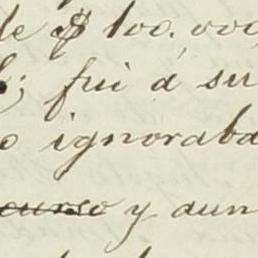 de $ 100.000
; fui á su
ignoraba
curso y aun